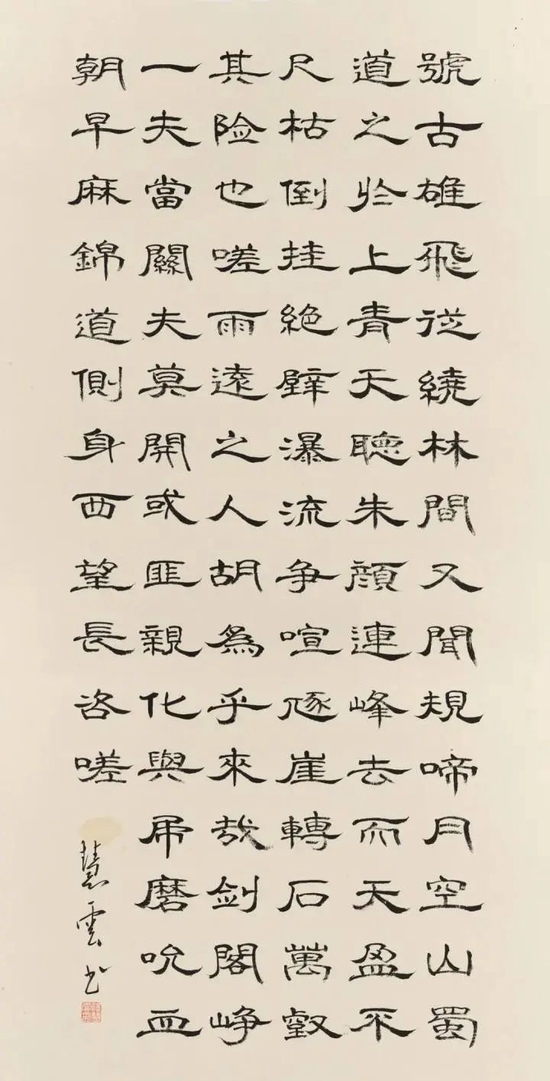 號古雄飛從繞林間又聞規啼月空山蜀
道之於上青天聽朱顏連峰去而天盈不
尺枯倒挂絶壁瀑流争喧崖轉石萬壑
其险也嗟雨遠之人胡為乎來哉剑閣峥
一夫當關夫莫開或匪親化與磨吮血
朝早麻錦道側身西望長咨嗟
慧雲书